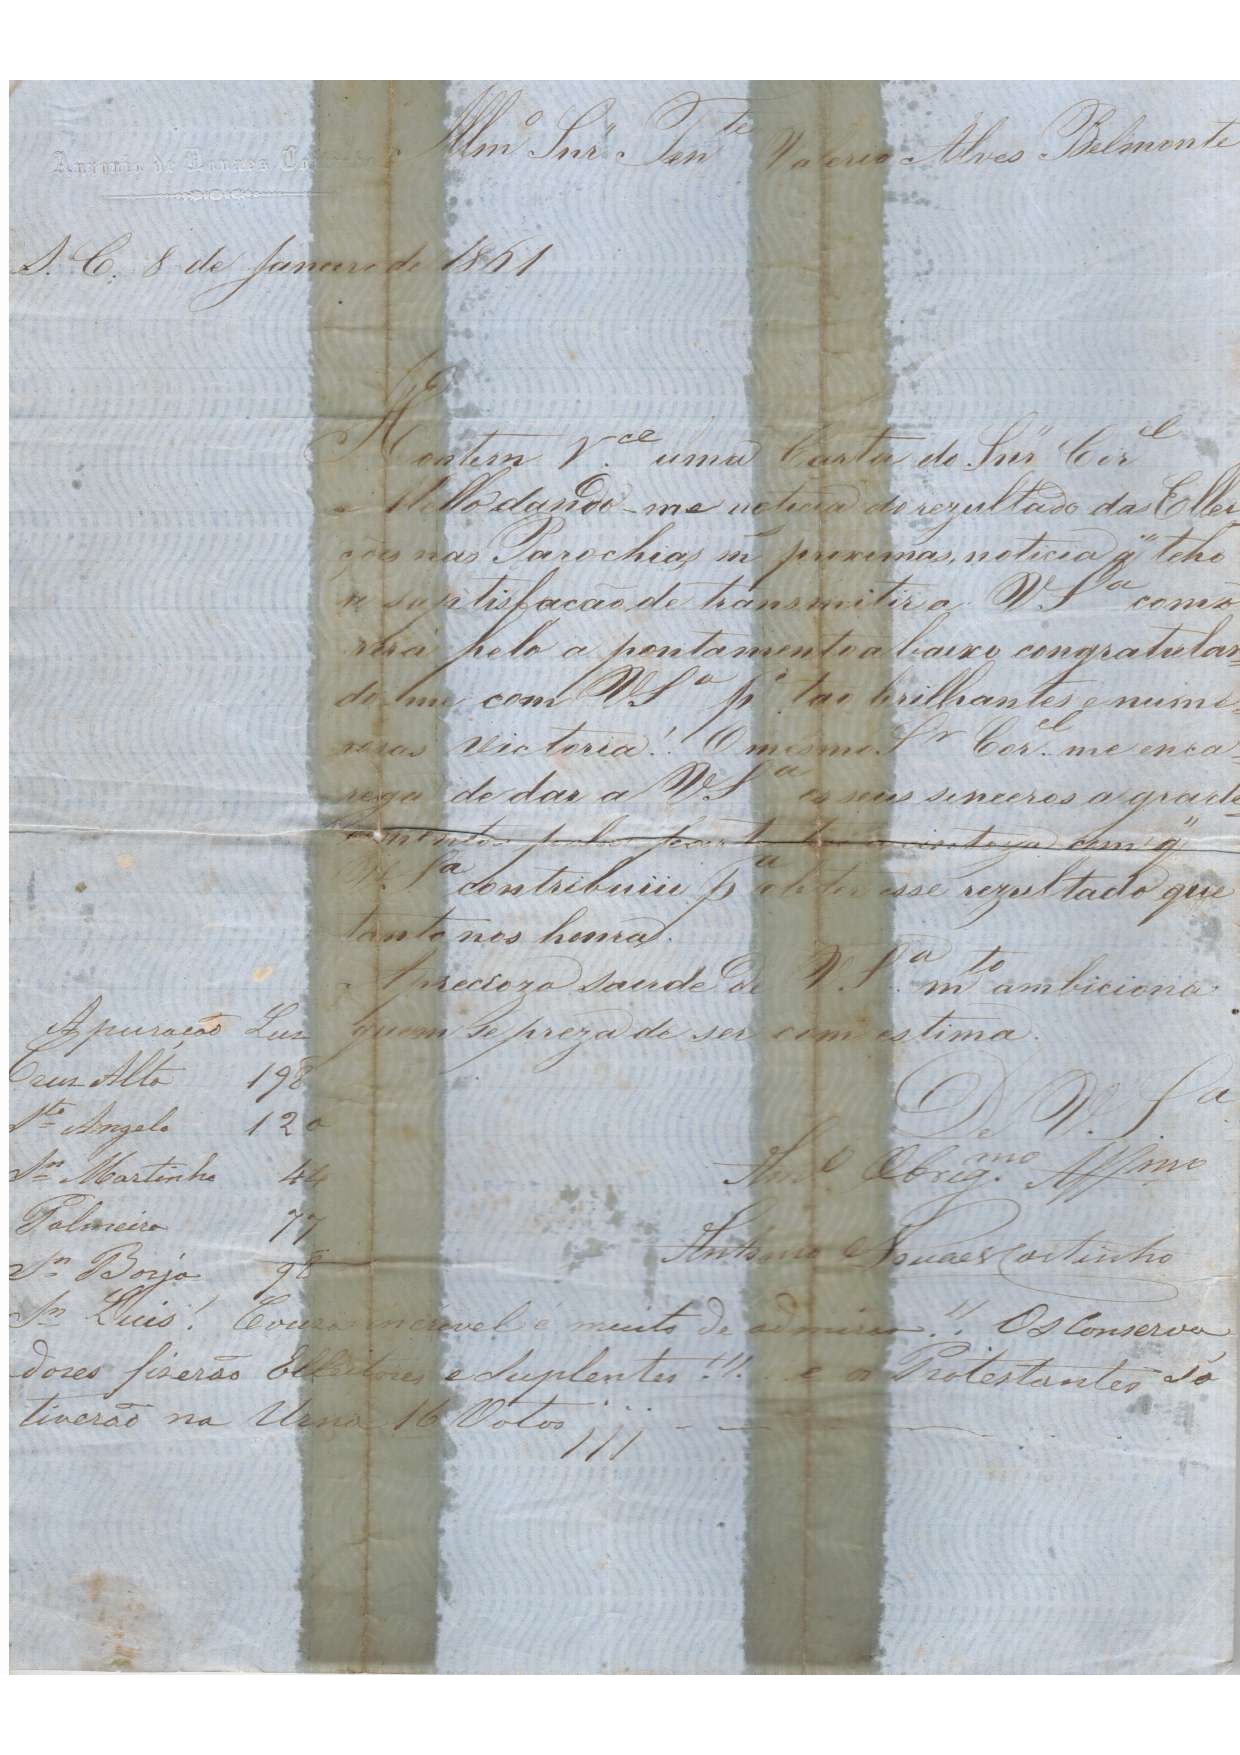 Illmº Snr Tente Valerio Alves Belmonte
Antonio de Novaes Co
S. C. 8 de Janeiro de 1861
Hontem r.ce uma Carta do Snr Corel
Mello dando-me noticia do rezultado das Ellei
ções nas Parochias m proximas, noticia qe tenho
a saptisfacão de transmitir a V Sa como
verá pelo apontamento abaixo congratulan=
do-me com V Sa pr tão brilhantes e nume=
rosas victoria! O mesmo Sr Corel me enca=
rega de dar a V Sa os seus sinceros agrade=
cimentos pela parte com qe
V. Sa contribuiu pa obter esse rezultado que
tanto nos honra.
A precioza saude de V. Sa mto ambiciona
quem se preza de ser com estima.
De V. Sa
Amº Obrigmo Affmo
Antonio Novaes Coutinho
Apuração
Cruz Alta 198
Sto Angelo 120
Sn Martinho 44
Palmeira 77
Sn Borja 98
Sn Luis! Couza incrivel e muito de admirar!! Os Conserva
dores fizerão Elleitores e Suplentes!!! . . e os Protestantes só
tiverão na Urna 16 Votos ¡¡¡